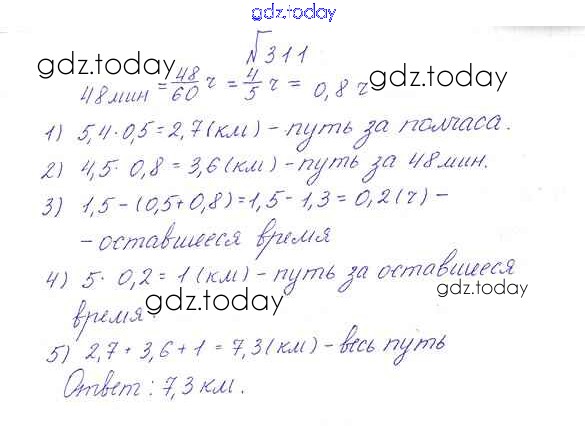 gdz.today
№311
gdz.today
48мин = 48/60 ч = 4/5 ч = 0,8 ч
gdz.today
1) 5,4·0,5=2,7(км) – путь за полчаса.
2) 4,5·0,8=3,6(км) – путь за 48мин.
3) 1,5-(0,5+0,8)=1,5-1,3=0,2(ч) –
– оставшееся время
4) 5·0,2=1(км) – путь за оставшееся
gdz.today
gdz.today
время.
5) 2,7+3,6+1=7,3(км) – весь путь
Ответ: 7,3км.